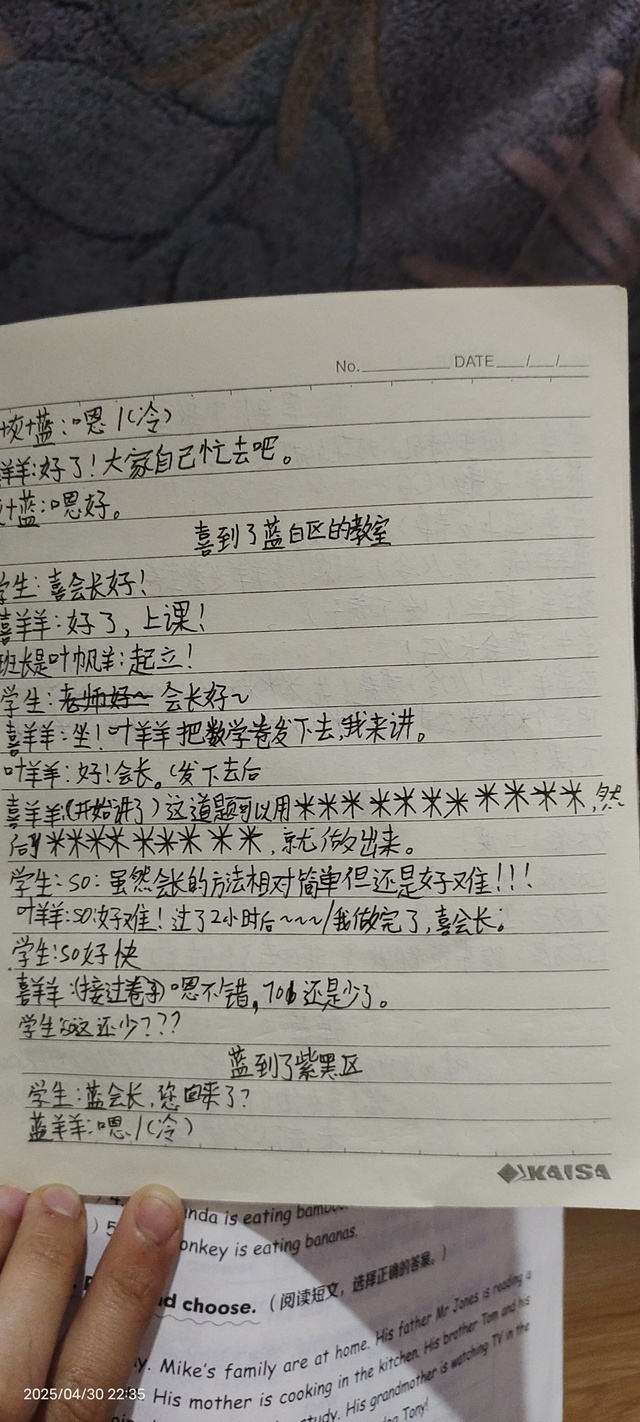 No. DATE / /
灰+蓝:嗯!(冷)
羊羊:好了!大家自己忙去吧。
灰+蓝:嗯好。
喜到了蓝白区的教室
学生:喜会长好!
喜羊羊:好了,上课!
班长是叶帆羊:起立!
学生:老师好~ 会长好~
喜羊羊:坐!叶羊羊把数学卷发下去,我来讲。
叶羊羊:好!会长。(发下去后
喜羊羊:(开始讲了)这道题可以用*** ***** ****,然
后*****  *** **,就做出来。
学生:so:虽然会长的方法相对简单但还是好难!!!
叶羊羊:so:好难!过了2小时后~~~/我做完了,喜会长。
学生:so好快
喜羊羊:(接过卷子)嗯不错,还是少了。
学生:so这还少???
蓝到了紫黑区
学生:蓝会长,您回来了?
蓝羊羊:嗯!(冷)
KAISA
) 4. anda is eating bamboo
) 5. onkey is eating bananas.
and choose.(阅读短文,选择正确的答案。)
y. Mike's family are at home. His father Mr Jones is reading a
His mother is cooking in the kitchen. His brother Tom and his
study. His grandmother is watching TV in the
Tony!
2025/04/30 22:35